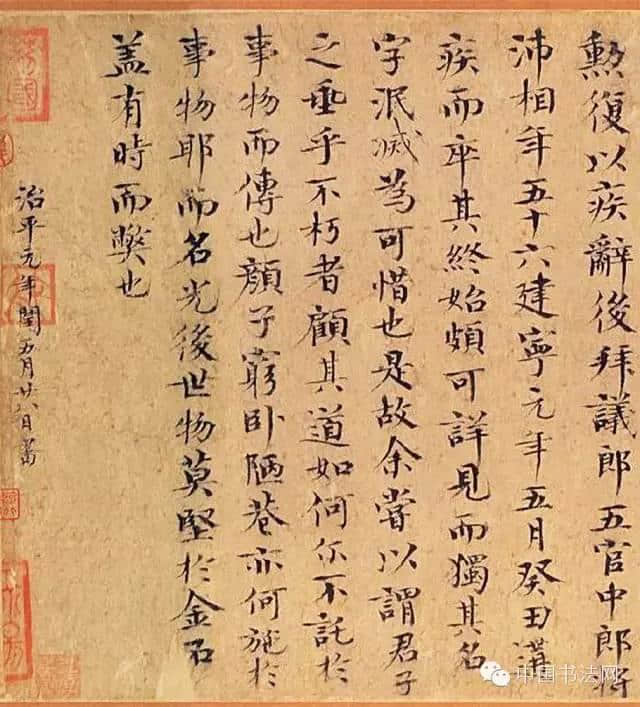 勲復以疾辭後拜議郎五官中郎将
沛相年五十六建寧元年五月癸丑遘
疾而卒其終始頗可詳見而獨其名
字泯滅為可惜也是故余嘗以謂君子
之垂乎不朽者顧其道如何尓不託於
事物而傳也顔子窮卧陋巷亦何施於
事物耶而名光後世物莫堅於金石
盖有時而獘也
治平元年閏五月廿八日書
中国书法网